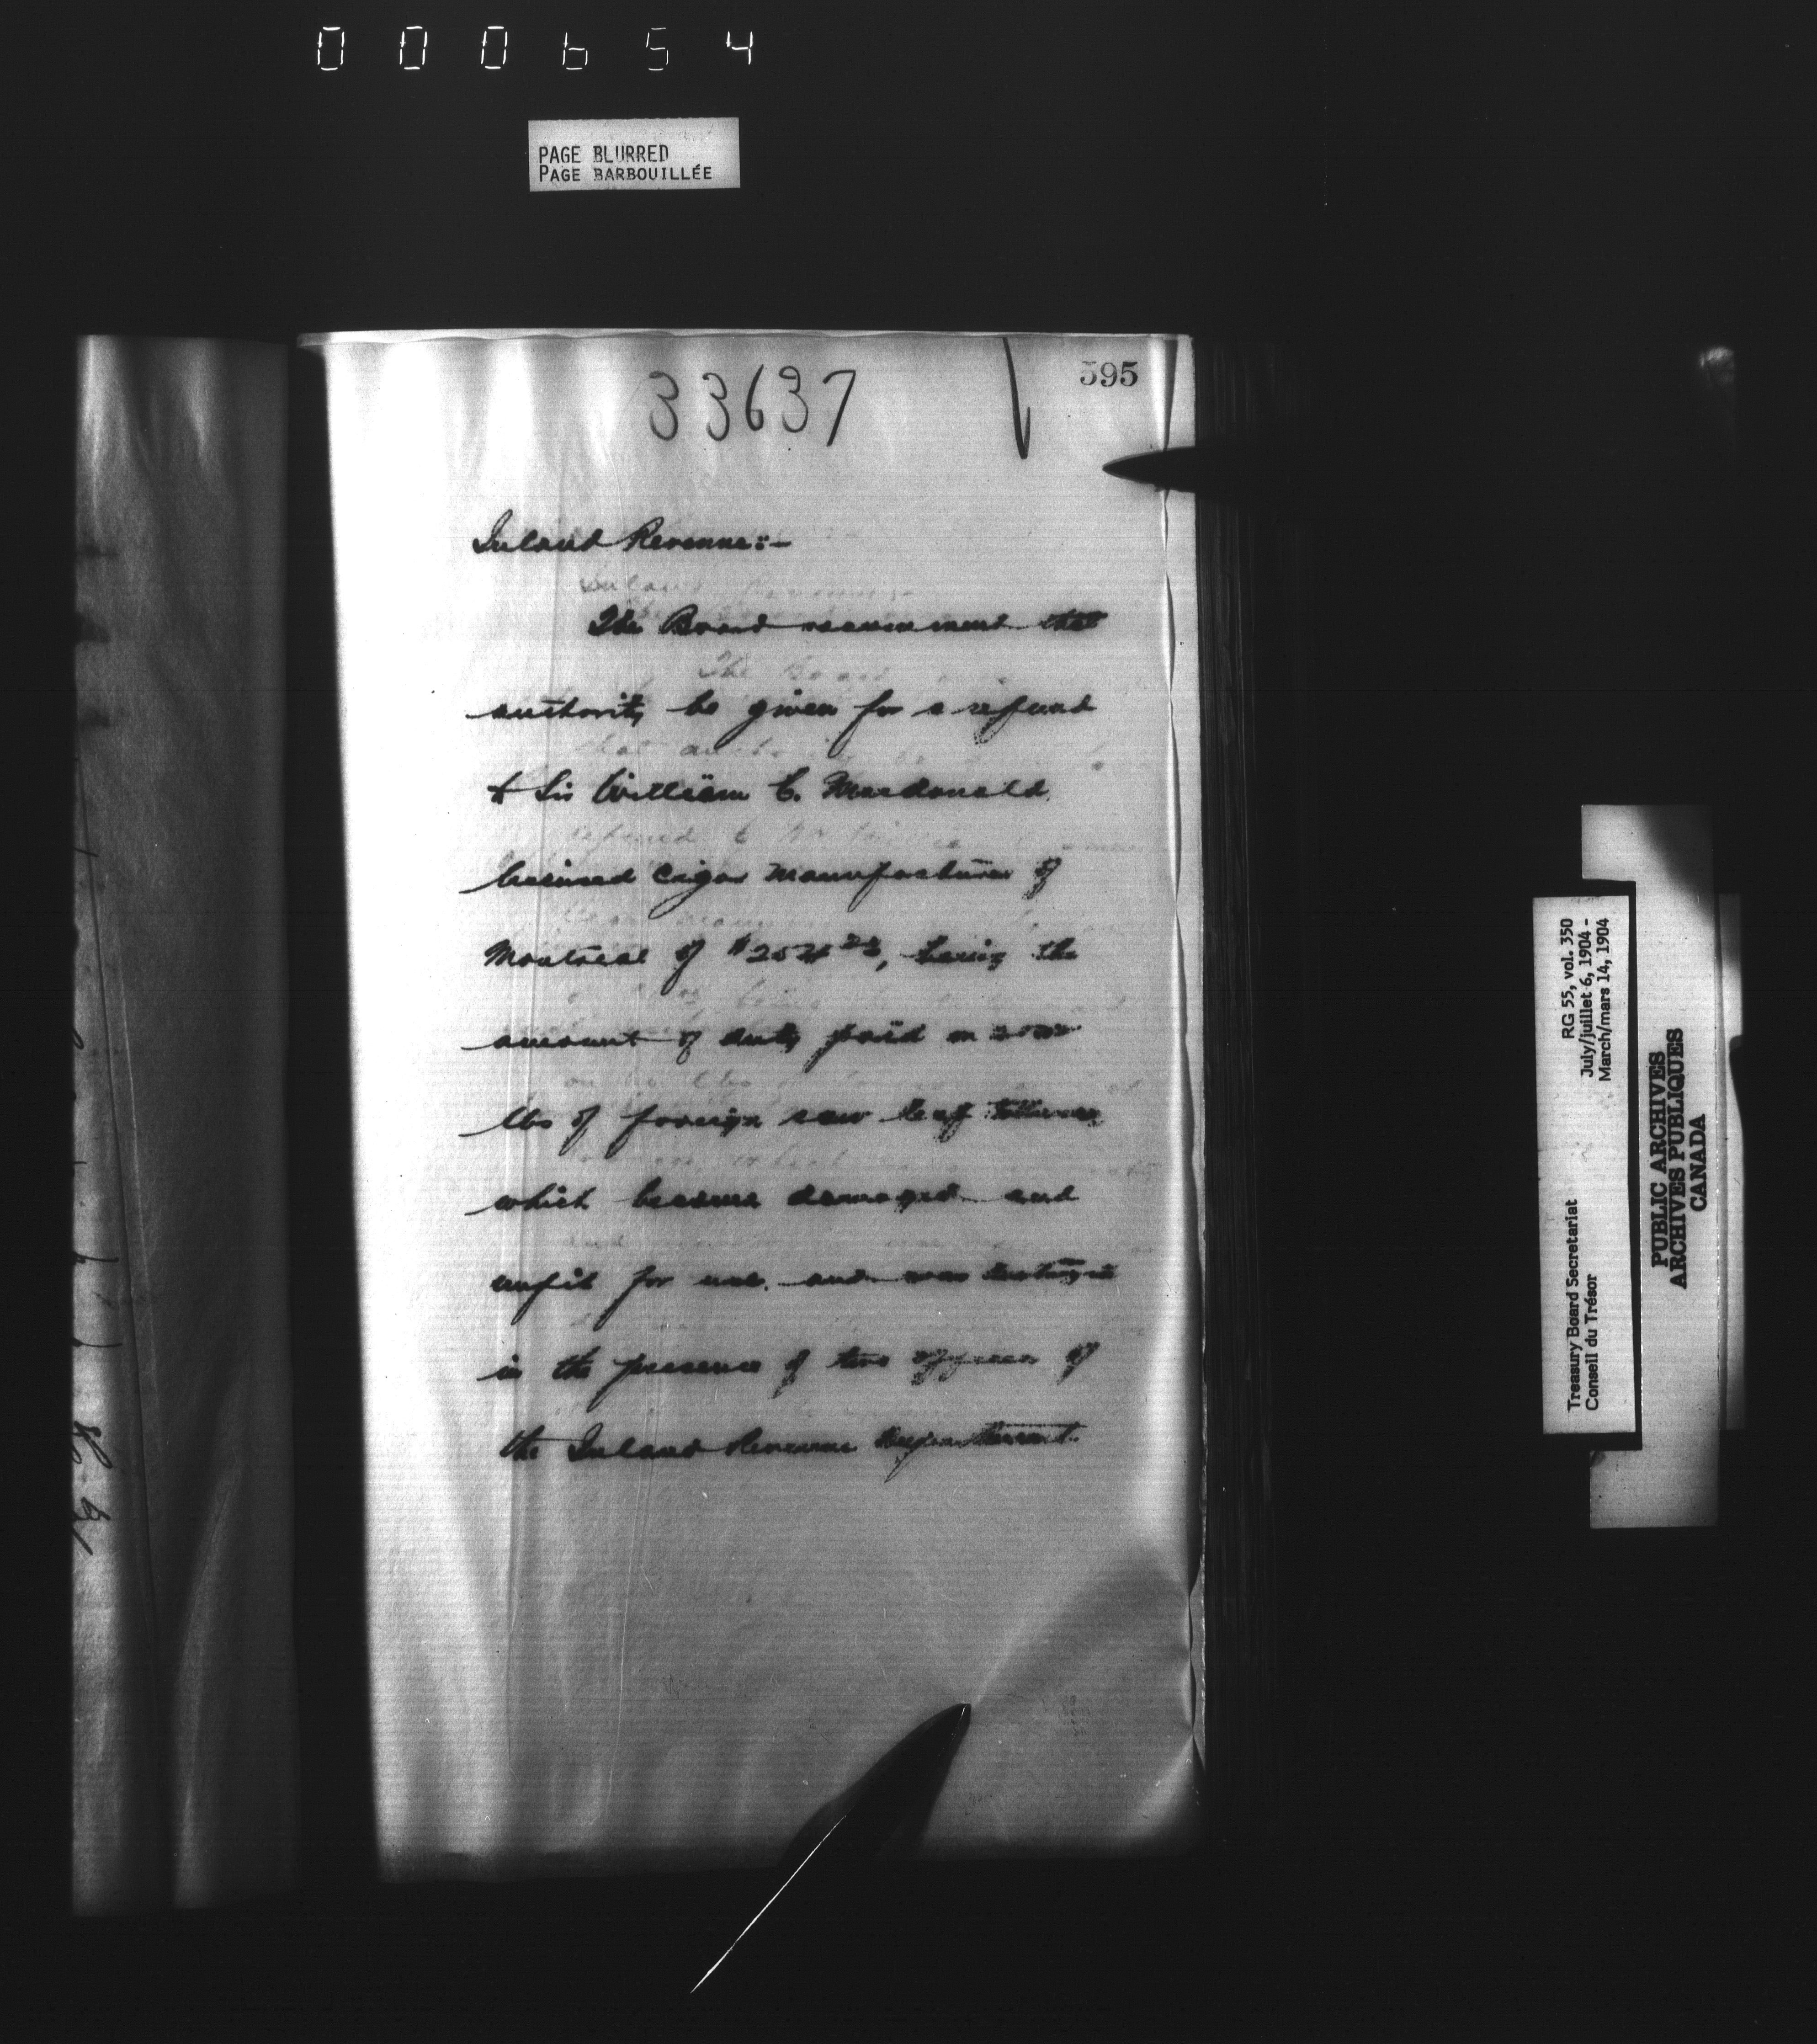 000654
PAGE BLURRED
PAGE BARBOUILLÉE
595
33637
Inland Revenue:-
The Board recommend that
authority be given for a refund
to Sir William C. Macdonald
licensed Cigar Manufacturer of
Montreal of being the
amount of duty paid on
lbs of foreign raw leaf tobacco
which became damaged and
unfit for use and was destroyed
in the presence of two officers of
the Inland Revenue Department.
RG 55, vol. 350
July/juillet 6, 1904 -
March/mars 14, 1904
Treasury Board Secretariat
Conseil du Trésor
PUBLIC ARCHIVES
ARCHIVES PUBLIQUES
CANADA